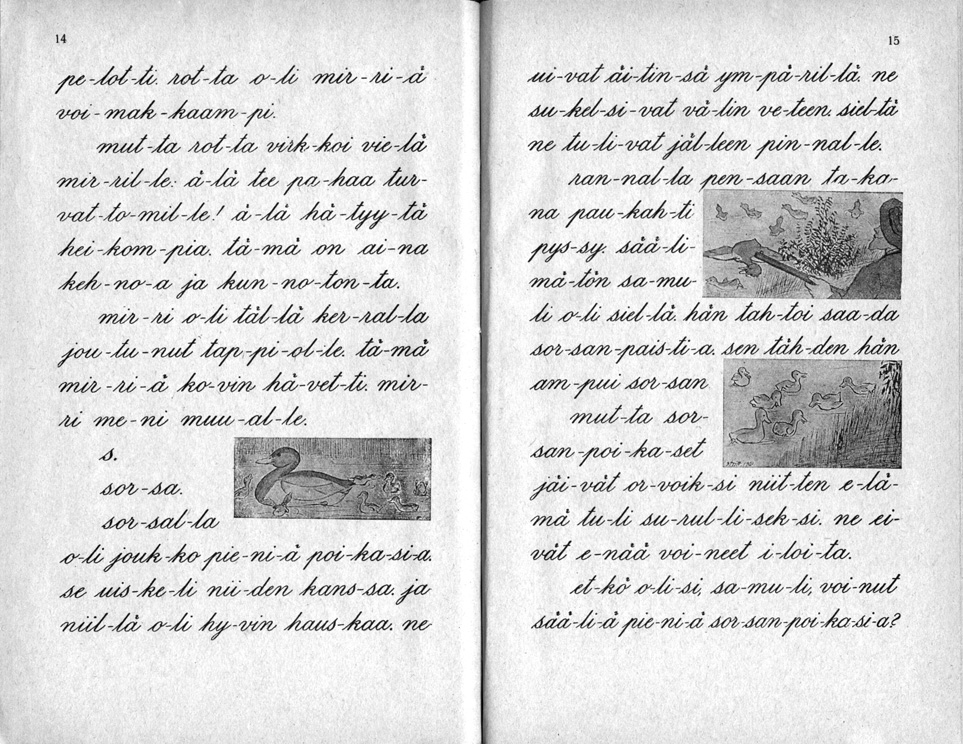 14
pe-lot-ti. rot-ta o-li mir-ri-ä
voi-mak-kaam-pi.
mut-ta rot-ta virk-koi vie-lä
mir-ril-le: ä-lä tee pa-haa tur-
vat-to-mil-le! ä-lä hä-tyy-tä
hei-kom-pia. tä-mä on ai-na
keh-no-a ja kun-no-ton-ta.
mir-ri o-li täl-lä ker-ral-la
jou-tu-nut tap-pi-ol-le. tä-mä
mir-ri-ä ko-vin hä-vet-ti. mir-
ri me-ni muu-al-le.
s.
sor-sa.
sor-sal-la
o-li jouk-ko pie-ni-ä poi-ka-si-a.
se uis-ke-li nii-den kans-sa. ja
niil-lä o-li hy-vin haus-kaa. ne
15
ui-vat äi-tin-sä ym-pä-ril-lä. ne
su-kel-si-vat vä-lin ve-teen. siel-tä
ne tu-li-vat jäl-leen pin-nal-le.
ran-nal-ta pen-saan ta-ka-
na pau-kah-ti
pys-sy. sää-li-
mä-tön sa-mu-
li o-li siel-lä. hän tah-toi saa-da
sor-san-pais-ti-a. sen täh-den hän
am-pui sor-san.
mut-ta sor-
san-poi-ka-set
jäi-vät or-voik-si niit-ten e-lä-
mä tu-li su-rul-li-sek-si. ne ei-
vät e-nää voi-neet i-loi-ta.
et-kö o-li-si, sa-mu-li, voi-nut
sää-li-ä pie-ni-ä sor-san-poi-ka-si-a?